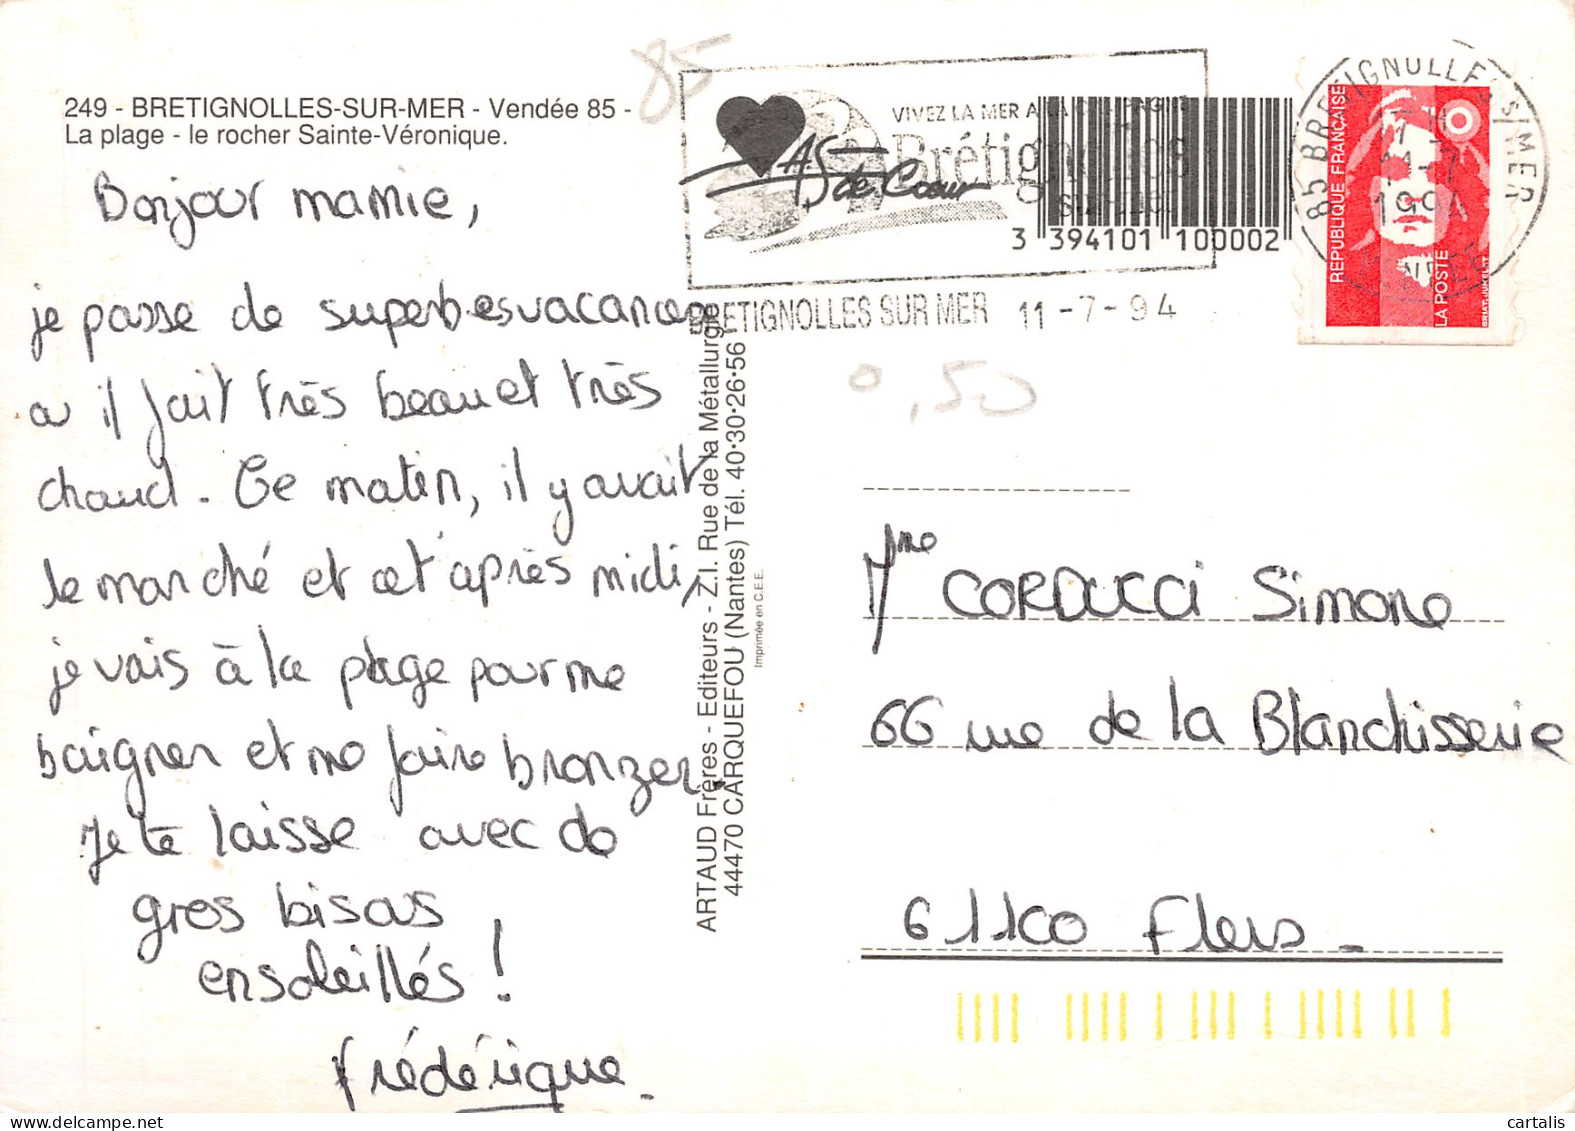 85
249 - BRETIGNOLLES-SUR-MER - Vendée 85 -
La plage - le rocher Sainte-Véronique.
Bonjour mamie,
je passe de superbes vacances
ou il fait très beau et très
chaud. Ce matin, il y avait
le marché et cet après midi,
je vais à la plage pour me
baigner et me faire bronzer.
Je te laisse avec de
gros bisous
ensoleillés !
Frédérique.
ARTAUD Frères - Editeurs - Z.I. Rue de la Métallurgie
44470 CARQUEFOU (Nantes) Tél. 40·30·26·56
Imprimée en C.E.E.
VIVEZ LA MER A LA CAMPAGNE
Brétignolles
sur Mer
AS de Cœur
3 394101 100002
BRETIGNOLLES SUR MER 11-7-94
85 BRETIGNOLLES S/MER
11-7
1994
VENDEE
REPUBLIQUE FRANÇAISE
LA POSTE
BRIAT-JUMELET
0,50
Mme CORDUCCI Simone
66 rue de la Blanchisserie
61100 Flers -
cartalis